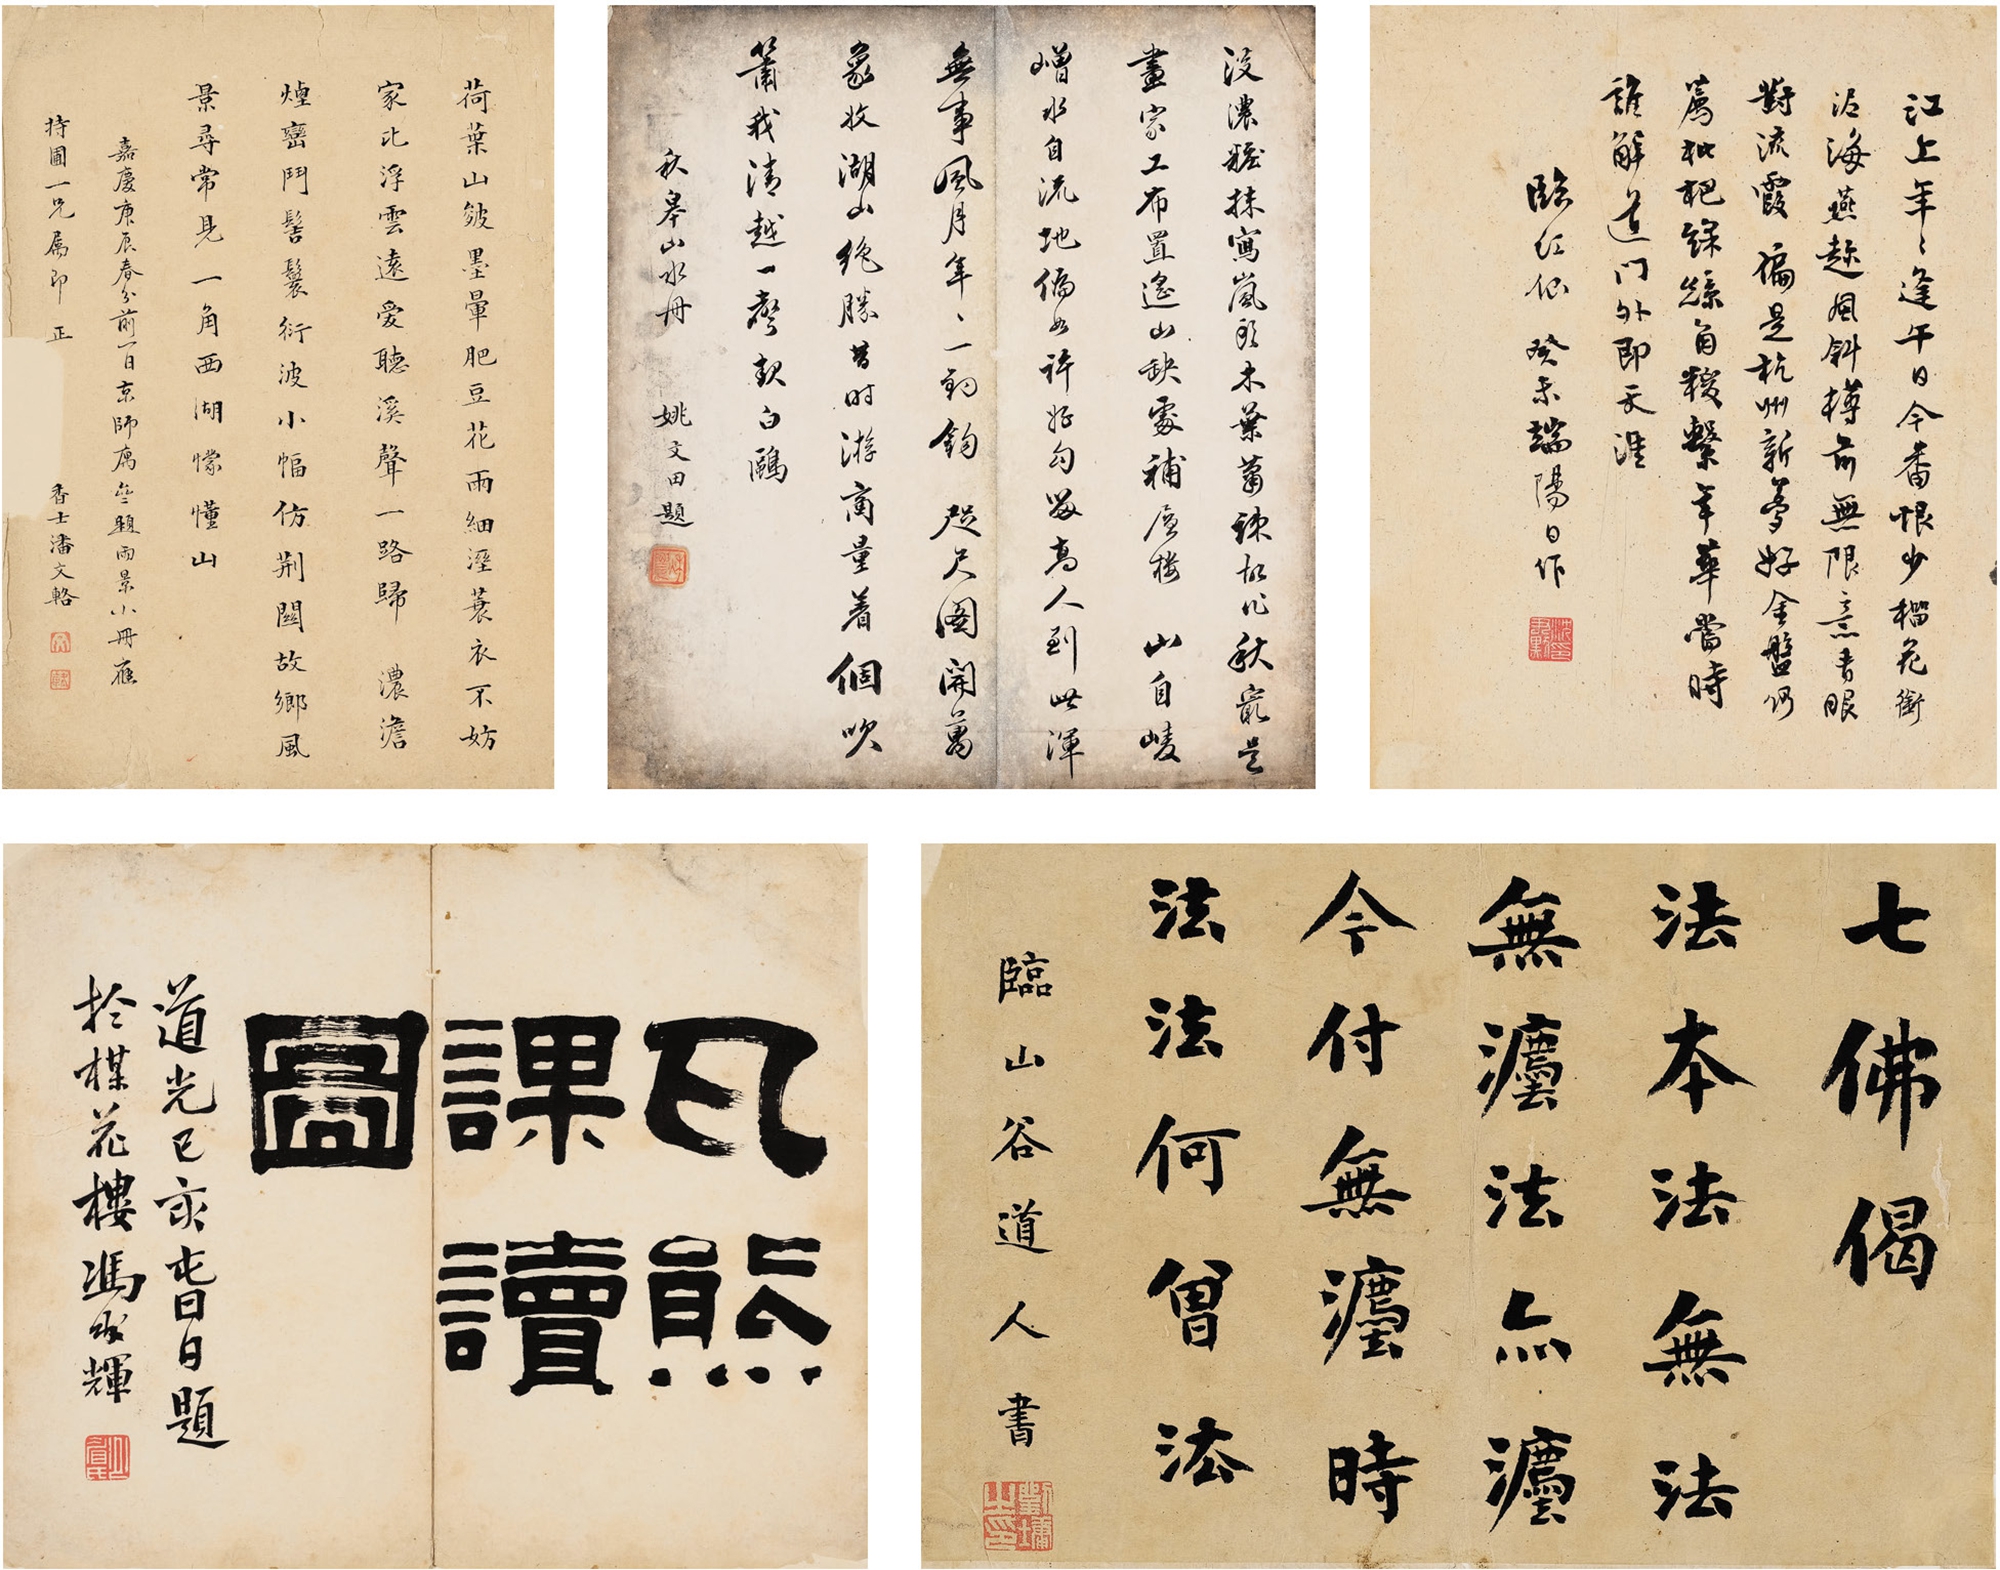 荷葉山皴墨暈肥豆花雨細溼蓑衣不妨
家比浮雲遠愛聽溪聲一路歸 濃澹
煙巒鬥髻鬟衍波小幅仿荆關故鄉風
景尋常見一角西湖懞懂山
嘉慶庚辰春分前一日京師寓齋題雨景小冊應
持圃一兄屬即正
香士潘文輅
沒濃籠抹寫嵐光木葉蕭疎報作秋最是
畫家工布置遙山缺處補層樓 山自崚
嶒水自流地偏如許好勾留高人到此渾
無事風月年〻一釣鉤 咫尺圖開萬
象收湖山絶勝昔時游商量着個吹
簫我清越一聲款白鷗
秋皋山水冊 姚文田題
江上年〻逢午日今番恨少榴花銜
泥海燕趁風斜樽前無限意青眼
對流霞 偏是杭州新夢好金盤仍
薦枇杷綵絲自較繫年華當時
誰解道門外即天涯
臨江仙 癸未端陽日作
丸熊
課讀
圖
道光己亥七月朔日題
於楳花樓馮承輝
七佛偈
法本法無法
無瀍法亦瀍
今付無瀍時
法法何曾法
臨山谷道人書
劉墉之印